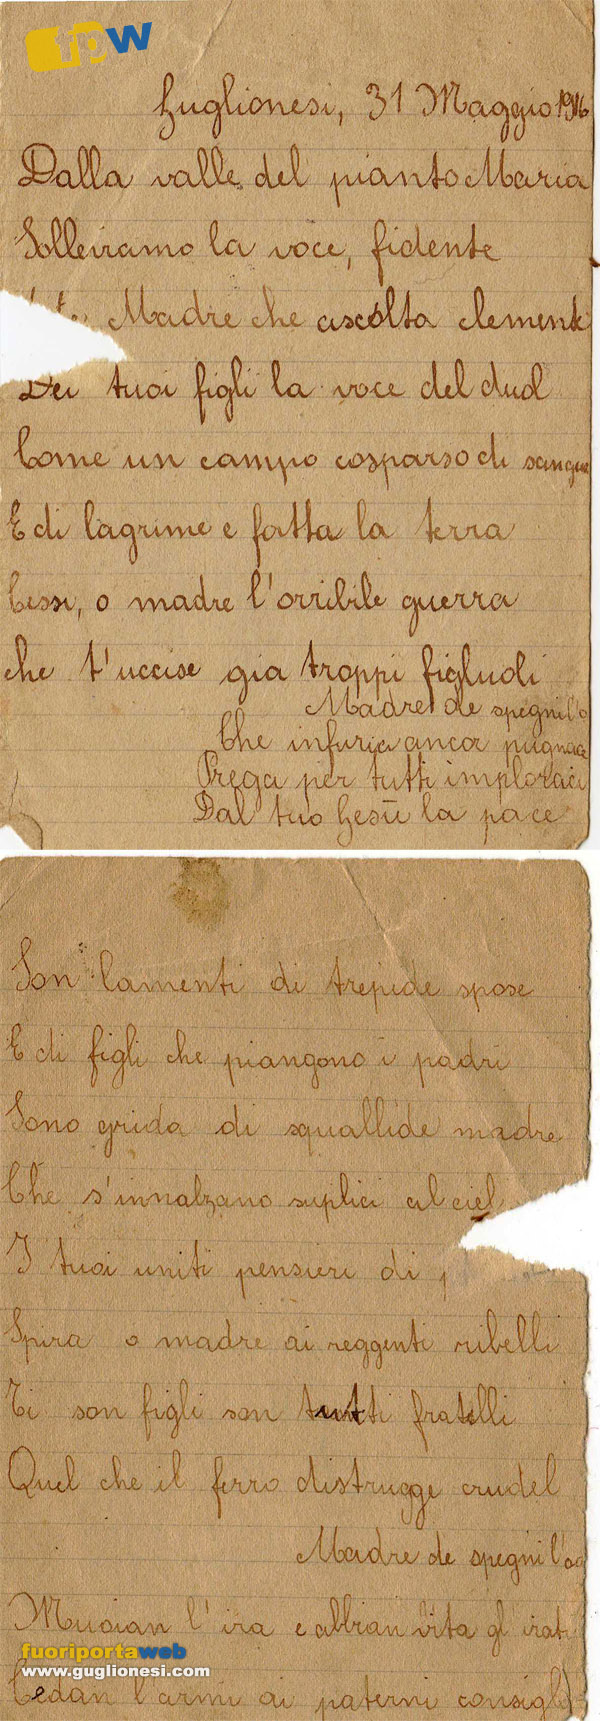 fpw
Guglionesi, 31 Maggio 1916
Dalla valle del pianto Maria
Solleviamo la voce, fidente
Madre che ascolta clemente
Dei tuoi figli la voce del duol
Come un campo cosparso di sangue
E di lagrime e fatta la terra
Cessi, o madre l'orribile guerra
che t'uccise gia troppi figluoli
Madre de spegni l'o
Che infuria ancor pugnace
Prega per tutti imploraci
Dal tuo Gesù la pace
Son lamenti di trepide spose
E di figli che piangono i padri
Sono grida di squallide madre
Che s'innalzano suplici al ciel
I tuoi uniti pensieri di
Spira o madre ai reggenti ribelli
Ti son figli son tutti fratelli
Quel che il ferro distrugge crudel
Madre de spegni l'od
Muoian l'ira e abbian vita gl irati
fuoriportaweb
www.guglionesi.com
Cedan l'armi ai paterni consigl